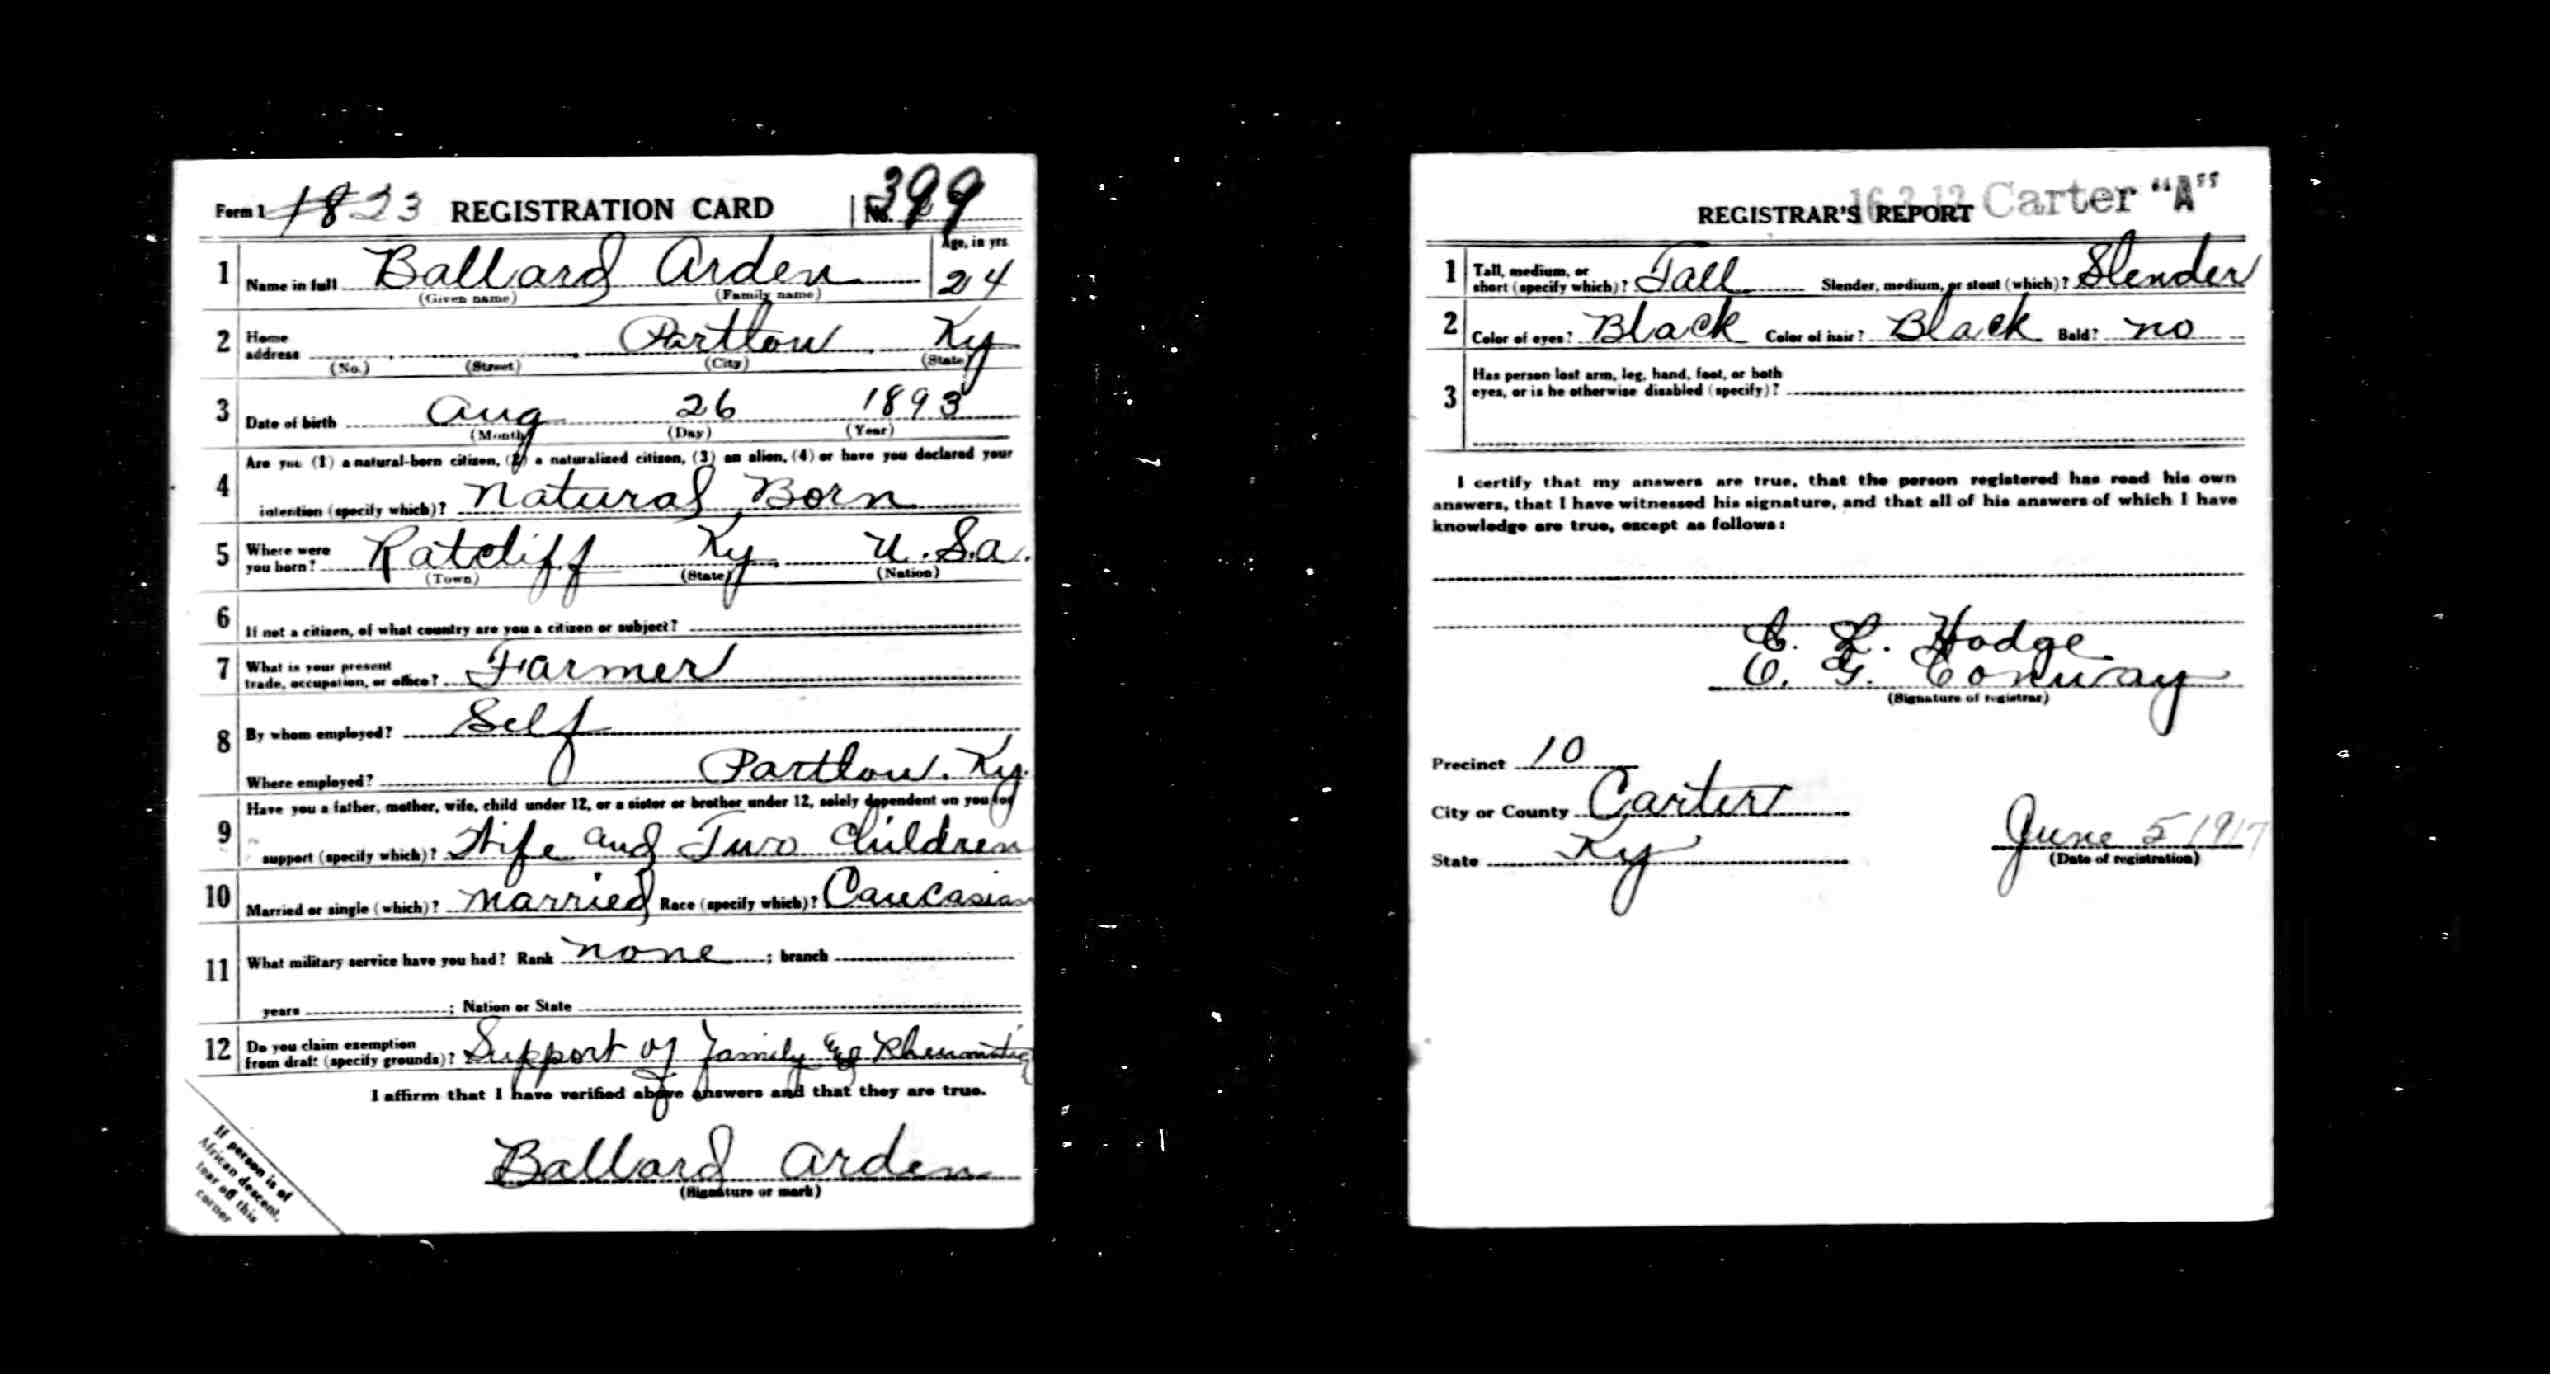 Form 1 1823 REGISTRATION CARD No. 399
1 Name in full Ballard Arden Age, in yrs 24
(Given name) (Family name)
2 Home address Partlow Ky
(No.) (Street) (City) (State)
3 Date of birth Aug 26 1893
(Month) (Day) (Year)
4 Are you (1) a natural-born citizen, (2) a naturalized citizen, (3) an alien, (4) or have you declared your
intention (specify which)? Natural Born
5 Where were you born? Ratcliff Ky U.S.A.
(Town) (State) (Nation)
6 If not a citizen, of what country are you a citizen or subject?
7 What is your present trade, occupation, or office? Farmer
8 By whom employed? Self
Where employed? Partlow. Ky.
9 Have you a father, mother, wife, child under 12, or a sister or brother under 12, solely dependent on you for
support (specify which)? Wife and Two Children
10 Married or single (which)? Married Race (specify which)? Caucasian
11 What military service have you had? Rank none ; branch
years ; Nation or State
12 Do you claim exemption from draft (specify grounds)? Support of family
I affirm that I have verified above answers and that they are true.
Ballard Arden
(Signature or mark)
If person is of
African descent,
tear off this
corner
REGISTRAR'S REPORT 16-2-12 Carter "A"
1 Tall, medium, or short (specify which)? Tall Slender, medium, or stout (which)? Slender
2 Color of eyes? Black Color of hair? Black Bald? no
3 Has person lost arm, leg, hand, foot, or both
eyes, or is he otherwise disabled (specify)?
I certify that my answers are true, that the person registered has read his own
answers, that I have witnessed his signature, and that all of his answers of which I have
knowledge are true, except as follows:
E. L. Hodge
C. G. Conway
(Signature of registrar)
Precinct 10
City or County Carter
State Ky
June 5 1917
(Date of registration)